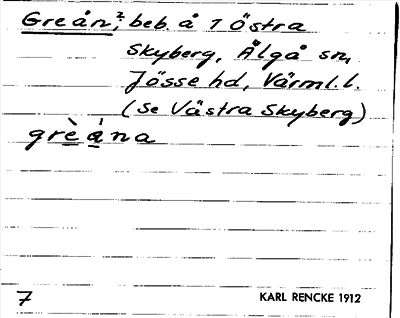 Greån,² beb. å 1 Östra
Skyberg, Älgå sn,
Jösse hd, Värml. l.
(Se Västra Skyberg)
grèána
7
KARL RENCKE 1912